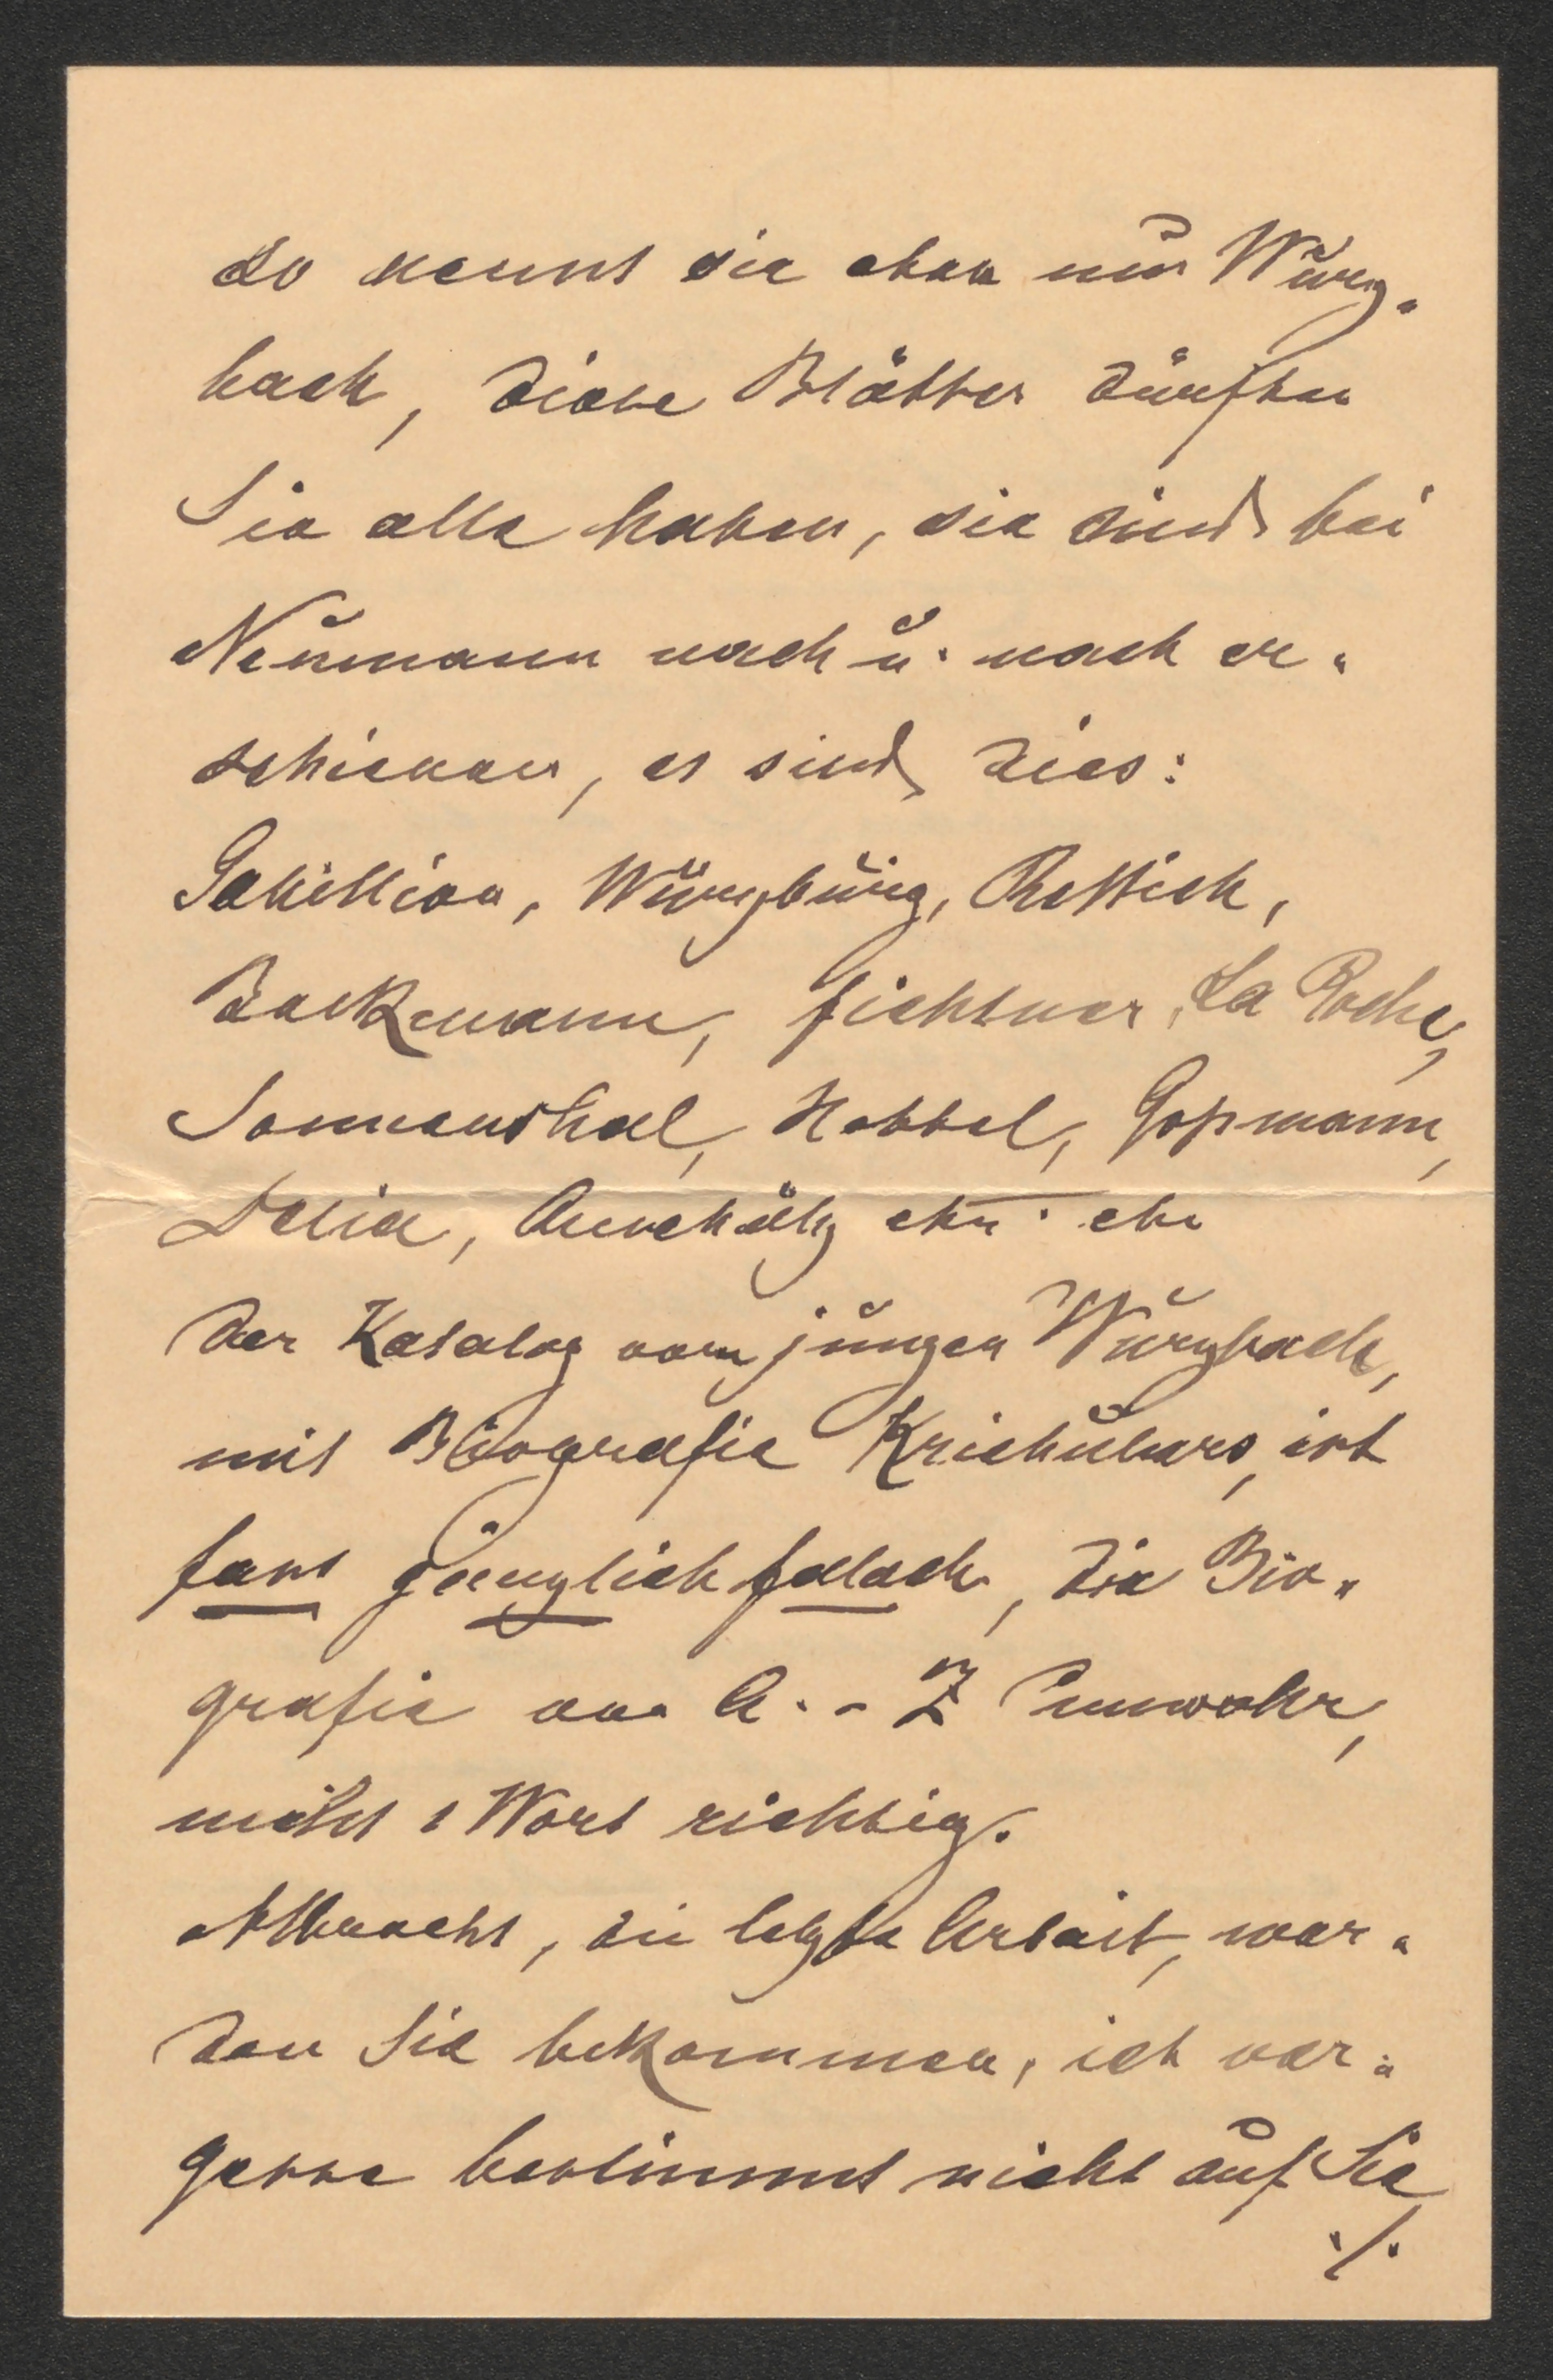 so nennt sie eben nur Wurz-
bach, diese Blätter dürften
Sie alle haben, sie sind bei
Neumann nach u. nach er-
schienen, es sind dies:
Schillien, Würzburg, Rettich,
Beckmann, Fichtner, La Roche,
Sonnenthal, Hebbel, Goßmann,
Delia, Anschütz etc. etc
Der Katalog vom jungen Wurzbach,
mit Biografie Kriehubers, ist
fast gänzlich falsch, die Bio-
grafie von A.-Z unwahr,
nicht 1 Wort richtig.
Albrecht, die letzte Arbeit, wer-
den Sie bekommen, ich ver-
gesse bestimmt nicht auf Sie
./.